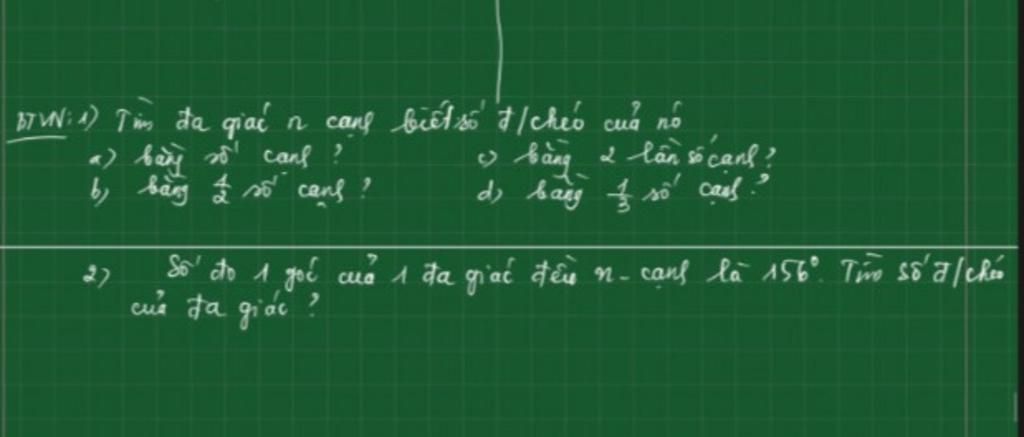 BTVN: 1) Tìm đa giác n cạnh biết số đ/chéo của nó
a) bằng số cạnh ?
c) bằng 2 lần số cạnh ?
b) bằng 1/2 số cạnh ?
d) bằng 1/3 số cạnh ?
2) Số đo 1 góc của 1 đa giác đều n-cạnh là 156°. Tìm số đ/chéo
của đa giác ?